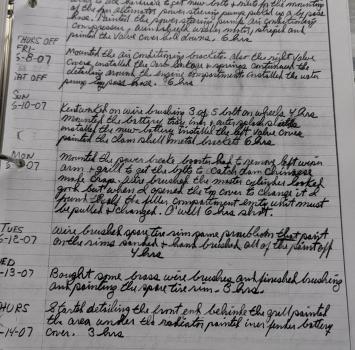 of the alternator power steering pump pulled up a 1/2 size
line. Painted the power steering pump, air conditioning
compressor, windshield washer motor, striped and
painted the clear cover hold downs. 6 hrs
THURS OFF
FRI
5-8-07
Mounted the air conditioning brackets also the right valve
cover, installed the carb linkage & springs continued the
detailing around the engine compartment installed the water
pump by pass hose. 6 hrs
SAT OFF
SUN
5-10-07
wire brushing 3 of 5 bolt on wheels 4 hrs
mounted the battery tray and splash plate
installed the new battery installed the left valve cover
painted the clam shell metal brackets 6 hrs
MON
Mounted the power brake booster had to remove left wiper
arm & grill to get the bolts in. Catch dam Chinese
made crap. Wire brushed the master cylinder looked
good but when I opened the top cover to change it I
found the filler compartment empty what must
be pulled & changed. O well 6 hrs shot.
TUES
5-12-07
Wire brushed spare tire rim same problem that paint
on the rims sanded & hand brushed all of the paint off
4 hrs
WED
-13-07
Bought some brass wire brushes and finished brushing
and painting the spare tire rim. 3 hrs.
THURS
-14-07
Started detailing the front end behind the grill painted
the area under the radiator painted inner fender battery
cover. 3 hrs